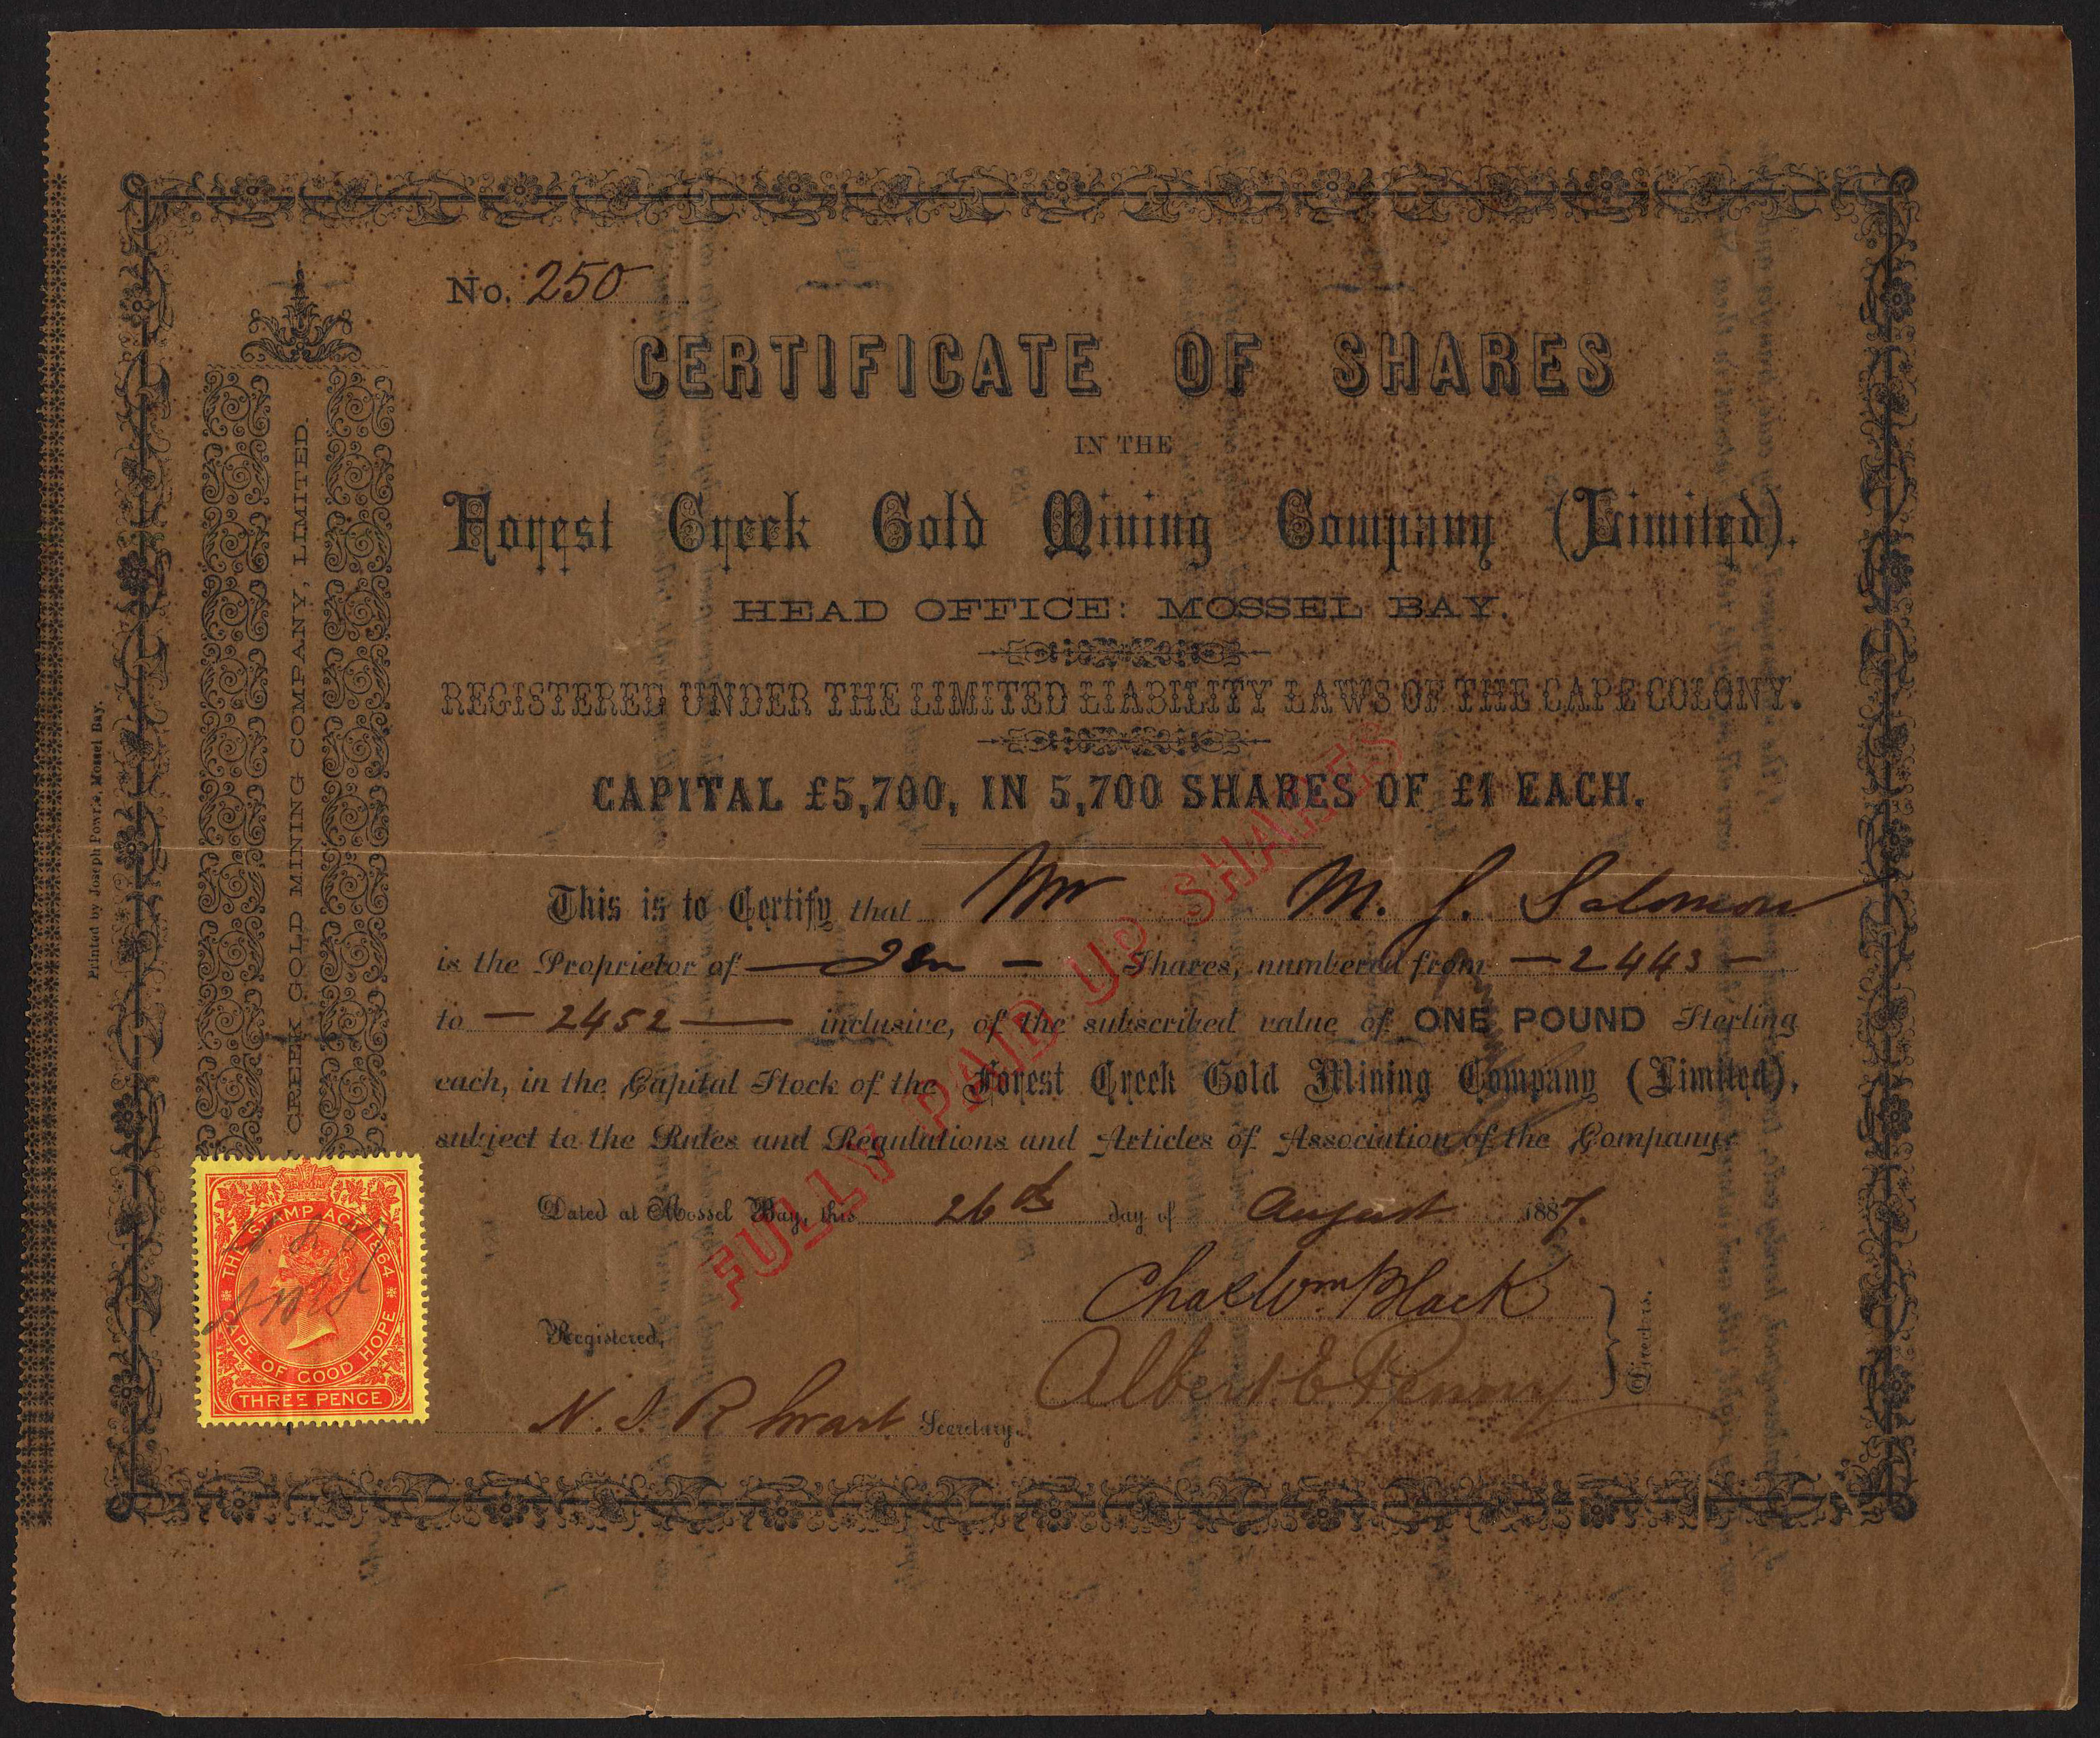 No. 250
CERTIFICATE OF SHARES
IN THE
Forest Creek Gold Mining Company (Limited).
HEAD OFFICE: MOSSEL BAY.
REGISTERED UNDER THE LIMITED LIABILITY LAWS OF THE CAPE COLONY.
CAPITAL £5,700, IN 5,700 SHARES OF £1 EACH.
This is to Certify that Mr M. J. Salomon
is the Proprietor of — Ten — Shares, numbered from — 2443 —
to — 2452 — inclusive, of the subscribed value of ONE POUND Sterling
each, in the Capital Stock of the Forest Creek Gold Mining Company (Limited),
subject to the Rules and Regulations and Articles of Association of the Company.
Dated at Mossel Bay, this 26th day of August 1887.
Chas Wm Black
Albert E Penny
Directors.
Registered,
N. J. R Swart Secretary.
FULLY PAID UP SHARES
CREEK GOLD MINING COMPANY, LIMITED.
Printed by Joseph Powrie, Mossel Bay.
THE STAMP ACT 1864
CAPE OF GOOD HOPE
THREE PENCE